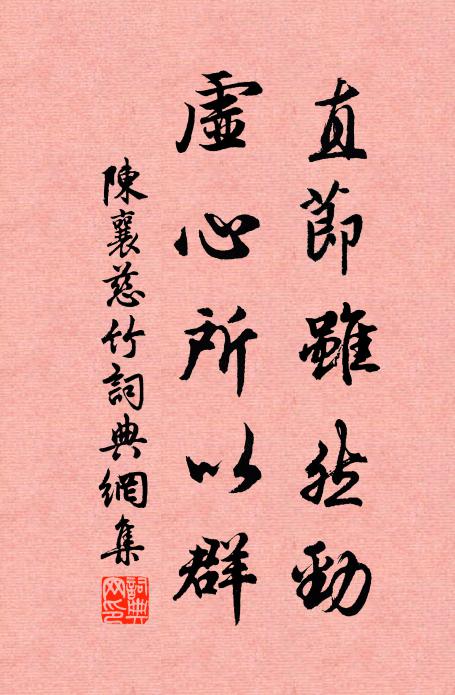 直節雖然勁
虛心所以群
陳襄慈竹詞典網集
詞典網印